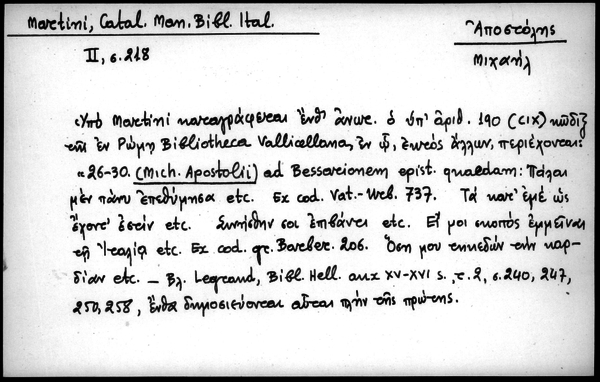 Martini, Catal. Man. Bibl. Ital.
II, σ. 218
Ἀποστόλης
Μιχαήλ
Ὑπὸ Martini καταγράφεται ἔνθ' ἄνωτ. ὁ ὑπ' ἀριθ. 190 (CIX) κῶδιξ
τῆς ἐν Ρώμῃ Bibliotheca Vallicellana, ἐν ᾧ, ἐκτὸς ἄλλων, περιέχονται:
«26-30. (Mich. Apostolii) ad Bessarionem epist. quaedam: Πάλαι
μὲν πάνυ ἐπεθύμησα etc. Ex cod. Vat.-Urb. 737. Τὰ κατ' ἐμὲ ὡς
ἔχοντ' ἐστὶν etc. Συνήσθην σοι ἐπιβάντι etc. Εἴ μοι σκοπὸς ἐμμεῖναι
τῇ Ἰταλίᾳ etc. Ex cod. gr. Barber. 206. Ὅση μου τηκεδὼν τὴν καρ-
δίαν etc. – Βλ. Legrand, Bibl. Hell. aux XV-XVI s., τ. 2, σ. 240, 247,
250, 258, ἔνθα δημοσιεύονται αὗται πλὴν τῆς πρώτης.